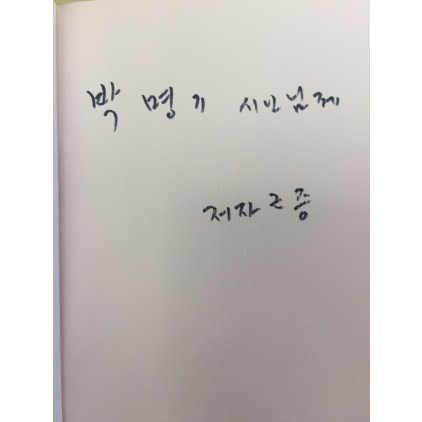 박 명 기 시인님께
저자 근 증